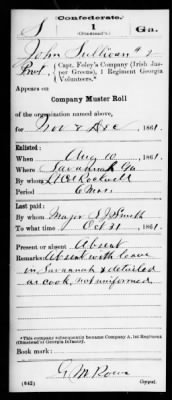 Confederate.
S 1 Ga.
(Olmstead's)
John Sullivan #2
Pvt, Capt. Foley's Company (Irish Jasper Greens), 1 Regiment Georgia Volunteers.*
Appears on
Company Muster Roll
of the organization named above,
for Nov & Dec, 1861.
Enlisted:
When Aug 10, 1861.
Where Savannah Ga
By whom
Period 6 Mos.
Last paid:
By whom Major Smith
To what time Oct 31, 1861.
Present or absent Absent
Remarks: Absent with leave
in Savannah & detailed
as cook, not uniformed
*This company subsequently became Company A, 1st Regiment
(Olmstead's) Georgia Infantry.
Book mark:
G M
(642) Copyist.